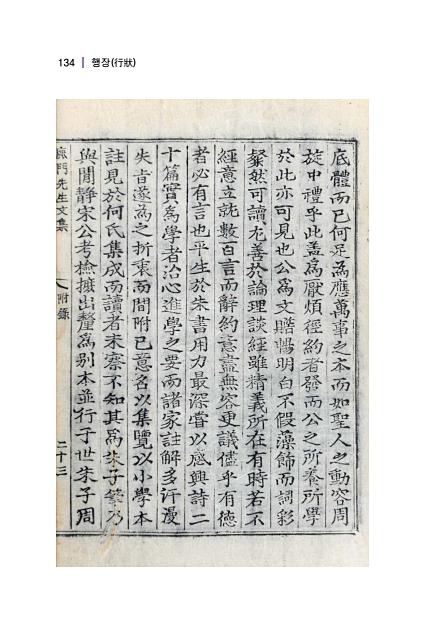 134 | 행장(行狀)
底體而已何足爲應萬事之本而如聖人之動容周
旋中禮乎此盖爲厭煩徑約者發而公之所養所學
於此亦可見也公爲文贍暢明白不假藻飾而詞彩
粲然可讀尤善於論理談經雖精義所在有時若不
經意立就數百言而辭約意盡無容更議儘乎有德
者必有言也平生於朱書用力最深嘗以感興詩二
十篇實爲學者治心進學之要而諸家註解多汗漫
失旨遂爲之折衷而間附己意名以集覽以小學本
註見於何氏集成而讀者未察不知其爲朱子筆乃
與閒靜宋公考檢摭出釐爲別本並行于世朱子周
先生文集
附錄
二十三